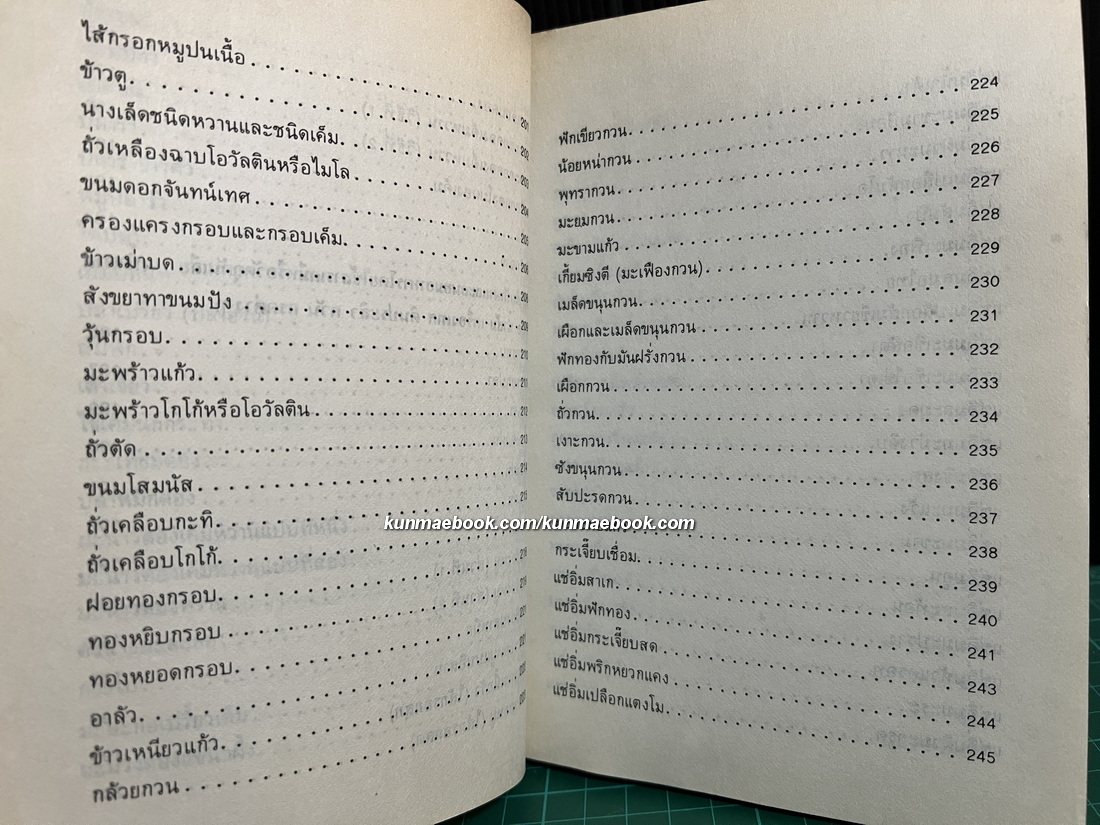 ไส้กรอกหมูปนเนื้อ
ข้าวตู
นางเล็ดชนิดหวานและชนิดเค็ม
ถั่วเหลืองฉาบโอวัลตินหรือไมโล
ขนมดอกจันทน์เทศ
ครองแครงกรอบและกรอบเค็ม
ข้าวเม่าบด
สังขยาทาขนมปัง
วุ้นกรอบ
มะพร้าวแก้ว
มะพร้าวโกโก้หรือโอวัลติน
ถั่วตัด
ขนมโสมนัส
ถั่วเคลือบกะทิ
ถั่วเคลือบโกโก้
ฝอยทองกรอบ
ทองหยิบกรอบ
ทองหยอดกรอบ
อาลัว
ข้าวเหนียวแก้ว
กล้วยกวน
ฟักเขียวกวน 224
น้อยหน่ากวน 225
พุทรากวน 226
มะยมกวน 227
มะขามแก้ว 228
เกี้ยมซิงตี (มะเฟืองกวน) 229
เมล็ดขนุนกวน 230
เผือกและเมล็ดขนุนกวน 231
ฟักทองกับมันฝรั่งกวน 232
เผือกกวน 233
ถั่วกวน 234
เงาะกวน 235
ซังขนุนกวน 236
สับปะรดกวน 237
kunmaebook.com/kunmaebook.com
238
กระเจี๊ยบเชื่อม 239
แช่อิ่มสาเก 240
แช่อิ่มฟักทอง 241
แช่อิ่มกระเจี๊ยบสด 243
แช่อิ่มพริกหยวกแดง 244
แช่อิ่มเปลือกแตงโม 245